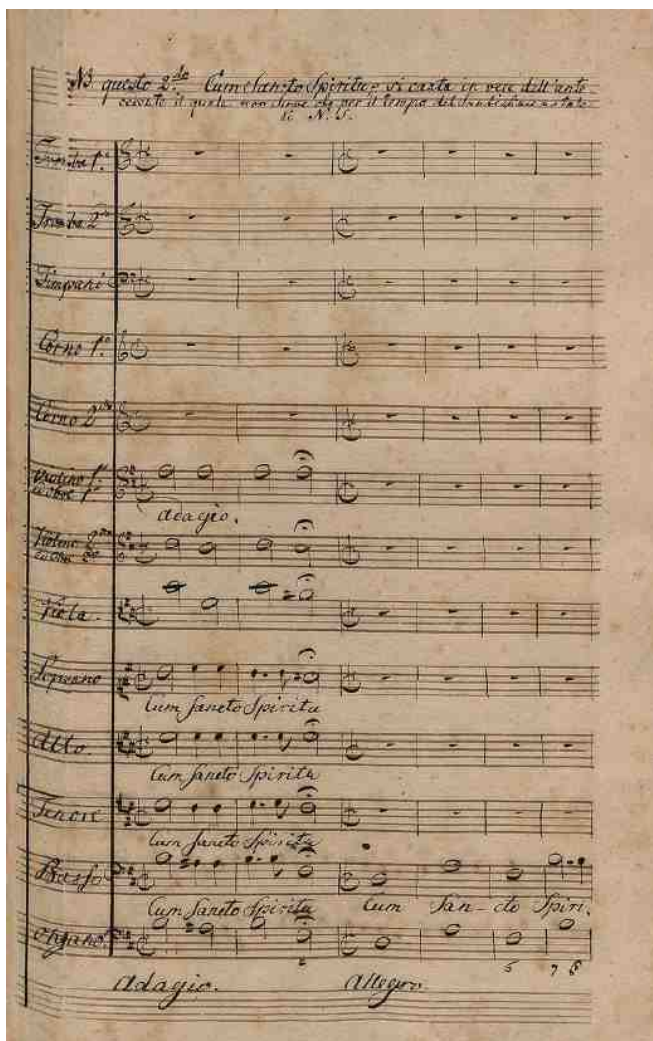 NB questo 2.do Cum Sancto Spiritu, si canta in vece dell'ante
cedente il quale non serve che per il tempo del
N. S.
Tromba 1.a
Tromba 2.da
Timpani
Corno 1.o
Corno 2.do
Violino 1.o
ed Oboe 1.o
Adagio.
Violino 2.do
ed Oboe 2.do
Viola.
Soprano
Cum Sancto Spiritu
Alto.
Cum Sancto Spiritu
Tenore
Cum Sancto Spiritu
Basso
Cum Sancto Spiritu Cum San-cto Spiri.
Organo.
5 7 6
Adagio. Allegro.